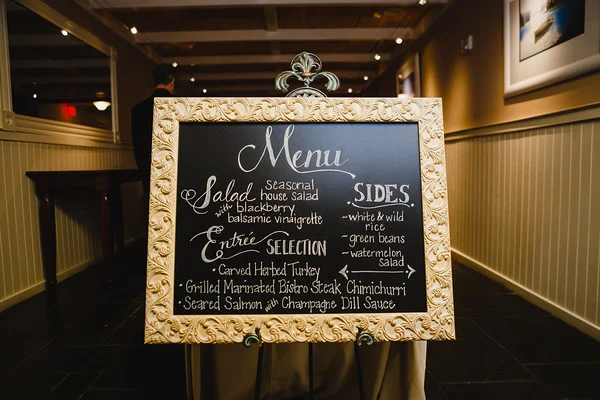 Menu
Salad seasonal
house salad
with blackberry
balsamic vinaigrette
SIDES
~white & wild
rice
~green beans
~watermelon
salad
Entrée SELECTION
• Carved Herbed Turkey
• Grilled Marinated Bistro Steak Chimichurri
• Seared Salmon with Champagne Dill Sauce